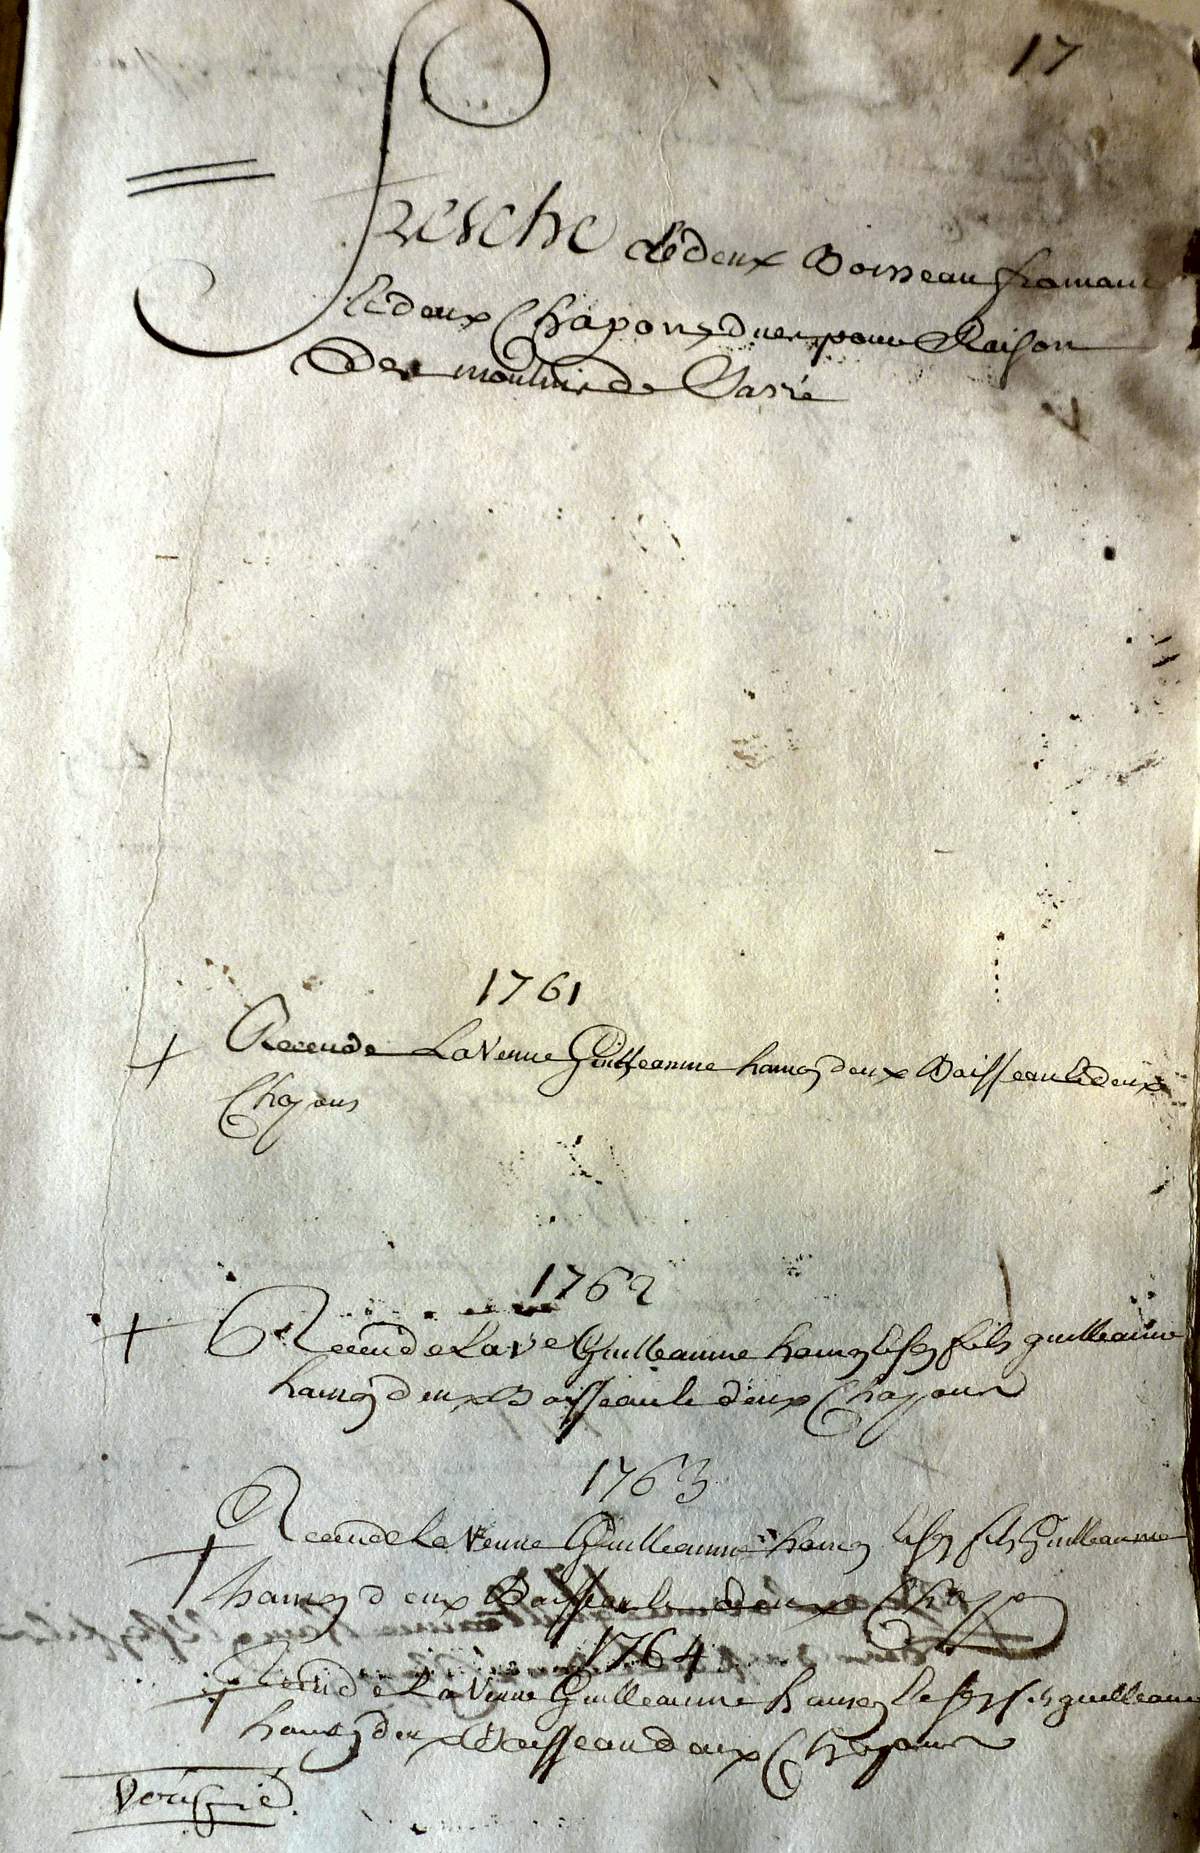 17
Fresche de deux Boisseau fromant
et deux Chapons dues pour Raison
Des moulins de Sarré
1761
Receu de La Veuve Guilleaume hamon deux Boisseau et deux
Chapons
1762
Receu de La ve Guilleaume hamon et son fils guilleaume
hamon deux Boisseau et deux Chapons
1763
Receu de La Veuve Guilleaume hamon et son fils Guilleaume
hamon deux Boisseau et deux Chapp
1764
Receu de La Veuve Guilleaume hamon et son fils guilleaume
hamon deux Boisseau deux Chapons
Vérifié